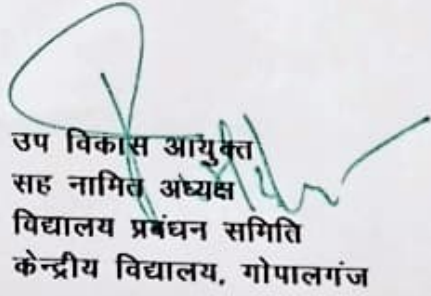 उप विकास आयुक्त
सह नामित अध्यक्ष
विद्यालय प्रबंधन समिति
केन्द्रीय विद्यालय, गोपालगंज